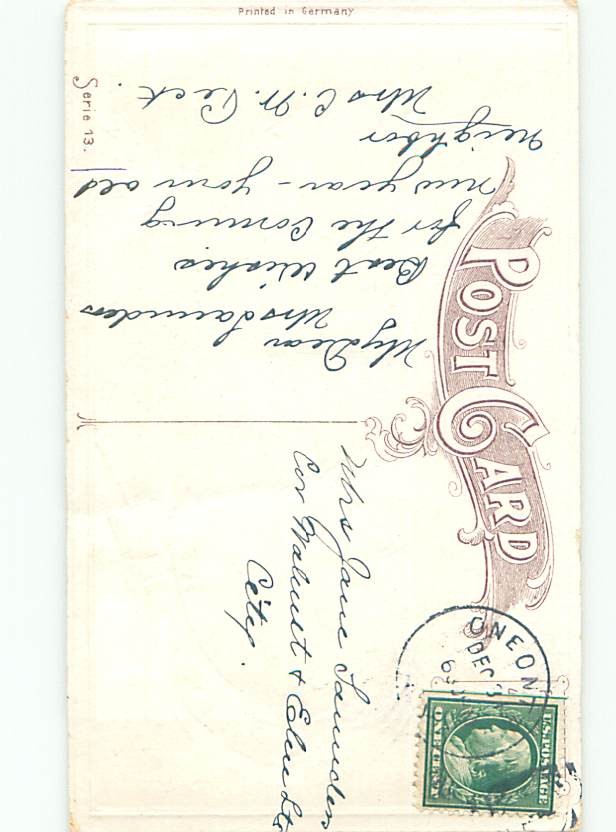 Printed in Germany
Serie 13.
POST CARD
My Dear
Mrs Saunders
Best Wishes
for the Coming
new year - your old
neighbor
Mrs C. W. Peck.
Mrs Jane Saunders
Cor Walnut & Elm Sts
City.
ONEONT
DEC 3
6
U.S. POSTAGE
ONE CENT